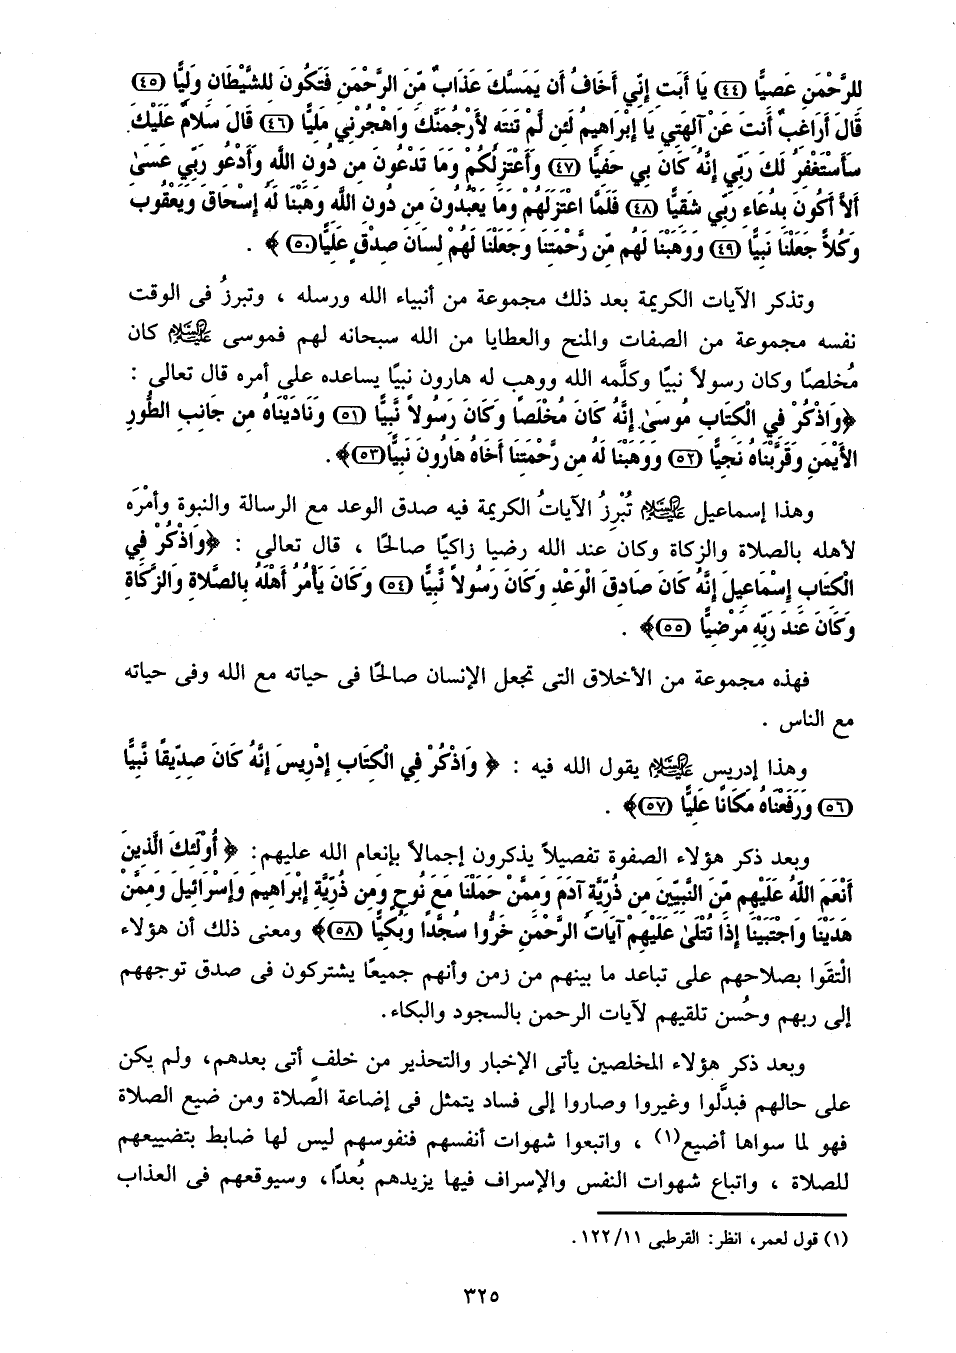 للرَّحْمَنِ عَصِيًّا (٤٤) يَا أَبَتِ إِنِّي أَخَافُ أَن يَمَسَّكَ عَذَابٌ مِّنَ الرَّحْمَنِ فَتَكُونَ لِلشَّيْطَانِ وَلِيًّا (٤٥)
قَالَ أَرَاغِبٌ أَنتَ عَنْ آلِهَتِي يَا إِبْرَاهِيمُ لَئِن لَّمْ تَنتَهِ لأَرْجُمَنَّكَ وَاهْجُرْنِي مَلِيًّا (٤٦) قَالَ سَلامٌ عَلَيْكَ
سَأَسْتَغْفِرُ لَكَ رَبِّي إِنَّهُ كَانَ بِي حَفِيًّا (٤٧) وَأَعْتَزِلُكُمْ وَمَا تَدْعُونَ مِن دُونِ اللَّهِ وَأَدْعُو رَبِّي عَسَىٰ
أَلاَّ أَكُونَ بِدُعَاءِ رَبِّي شَقِيًّا (٤٨) فَلَمَّا اعْتَزَلَهُمْ وَمَا يَعْبُدُونَ مِن دُونِ اللَّهِ وَهَبْنَا لَهُ إِسْحَاقَ وَيَعْقُوبَ
وَكُلاًّ جَعَلْنَا نَبِيًّا (٤٩) وَوَهَبْنَا لَهُم مِّن رَّحْمَتِنَا وَجَعَلْنَا لَهُمْ لِسَانَ صِدْقٍ عَلِيًّا (٥٠) ﴾ .
وتذكر الآيات الكريمة بعد ذلك مجموعة من أنبياء الله ورسله ، وتبرزُ فى الوقت
نفسه مجموعة من الصفات والمنح والعطايا من الله سبحانه لهم فموسى عليه السلام كان
مُخلصًا وكان رسولاً نبيًا وكلَّمه الله ووهب له هارون نبيًا يساعده على أمره قال تعالى :
﴿وَاذْكُرْ فِي الْكِتَابِ مُوسَىٰ إِنَّهُ كَانَ مُخْلَصًا وَكَانَ رَسُولاً نَّبِيًّا (٥١) وَنَادَيْنَاهُ مِن جَانِبِ الطُّورِ
الأَيْمَنِ وَقَرَّبْنَاهُ نَجِيًّا (٥٢) وَوَهَبْنَا لَهُ مِن رَّحْمَتِنَا أَخَاهُ هَارُونَ نَبِيًّا (٥٣)﴾ .
وهذا إسماعيل عليه السلام تُبْرِزُ الآياتُ الكريمة فيه صدق الوعد مع الرسالة والنبوة وأمْرَه
لأهله بالصلاة والزكاة وكان عند الله رضيا زاكيًا صالحًا ، قال تعالى : ﴿وَاذْكُرْ فِي
الْكِتَابِ إِسْمَاعِيلَ إِنَّهُ كَانَ صَادِقَ الْوَعْدِ وَكَانَ رَسُولاً نَّبِيًّا (٥٤) وَكَانَ يَأْمُرُ أَهْلَهُ بِالصَّلاةِ وَالزَّكَاةِ
وَكَانَ عِندَ رَبِّهِ مَرْضِيًّا (٥٥)﴾ .
فهذه مجموعة من الأخلاق التى تجعل الإنسان صالحًا فى حياته مع الله وفى حياته
مع الناس .
وهذا إدريس عليه السلام يقول الله فيه : ﴿ وَاذْكُرْ فِي الْكِتَابِ إِدْرِيسَ إِنَّهُ كَانَ صِدِّيقًا نَّبِيًّا
(٥٦) وَرَفَعْنَاهُ مَكَانًا عَلِيًّا (٥٧)﴾ .
وبعد ذكر هؤلاء الصفوة تفصيلاً يذكرون إجمالاً بإنعام الله عليهم: ﴿ أُوْلَئِكَ الَّذِينَ
أَنْعَمَ اللَّهُ عَلَيْهِم مِّنَ النَّبِيِّينَ مِن ذُرِّيَّةِ آدَمَ وَمِمَّنْ حَمَلْنَا مَعَ نُوحٍ وَمِن ذُرِّيَّةِ إِبْرَاهِيمَ وَإِسْرَائِيلَ وَمِمَّنْ
هَدَيْنَا وَاجْتَبَيْنَا إِذَا تُتْلَىٰ عَلَيْهِمْ آيَاتُ الرَّحْمَنِ خَرُّوا سُجَّدًا وَبُكِيًّا (٥٨)﴾ ومعنى ذلك أن هؤلاء
الْتقَوا بصلاحهم على تباعد ما بينهم من زمن وأنهم جميعًا يشتركون فى صدق توجههم
إلى ربهم وحُسن تلقيهم لآيات الرحمن بالسجود والبكاء.
وبعد ذكر هؤلاء المخلصين يأتى الإخبار والتحذير من خلفٍ أتى بعدهم، ولم يكن
على حالهم فبدَّلوا وغيروا وصاروا إلى فساد يتمثل فى إضاعة الصلاة ومن ضيع الصلاة
فهو لما سواها أضيع(١) ، واتبعوا شهوات أنفسهم فنفوسهم ليس لها ضابط بتضييعهم
للصلاة ، واتباع شهوات النفس والإسراف فيها يزيدهم بُعدًا، وسيوقعهم فى العذاب
(١) قول لعمر، انظر: القرطبى ١٢٢/١١.
٣٢٥